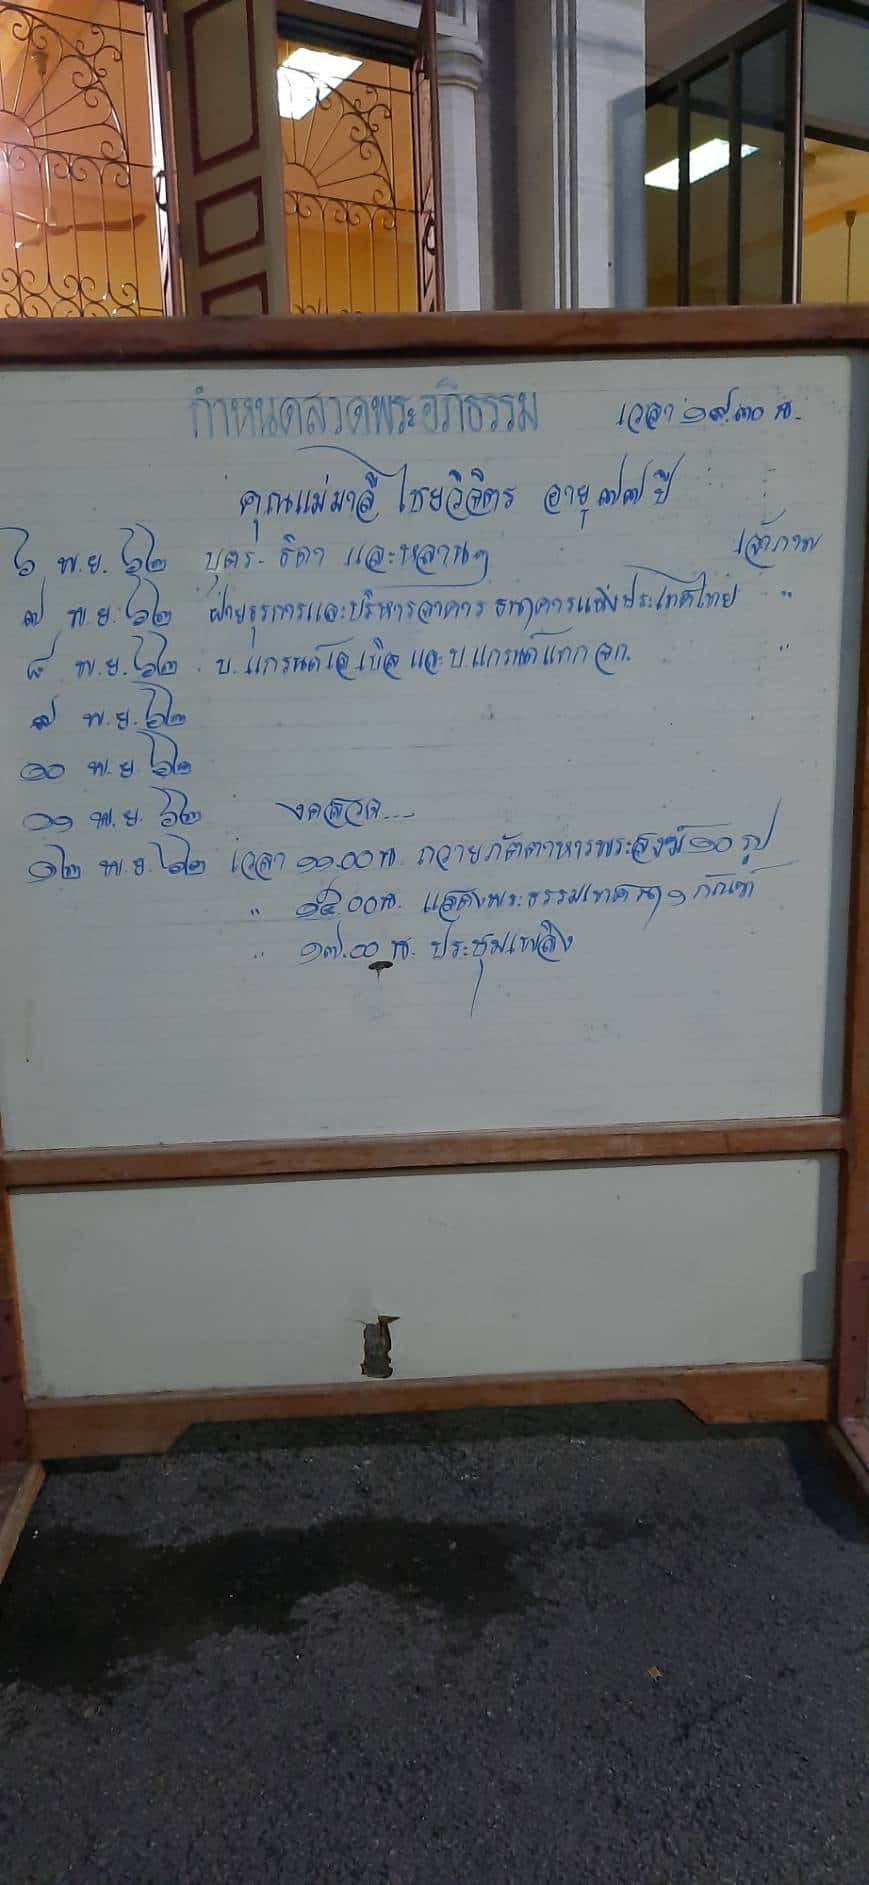 กำหนดสวดพระอภิธรรม เวลา ๑๙.๓๐ น.
คุณแม่มาลี ไชยวิจิตร อายุ ๗๗ ปี
๖ พ.ย. ๖๒ บุตร - ธิดา และหลานๆ เจ้าภาพ
๗ พ.ย. ๖๒ ฝ่ายธุรการและบริหารอาคาร ธนาคารแห่งประเทศไทย "
๘ พ.ย. ๖๒ บ. แกรนด์ และ บ. แกรนด์ จก. "
๙ พ.ย. ๖๒
๑๐ พ.ย. ๖๒
๑๑ พ.ย. ๖๒ งดสวด....
๑๒ พ.ย. ๖๒ เวลา ๑๑.๐๐ น. ถวายภัตตาหารพระสงฆ์ ๑๐ รูป
" ๑๕.๐๐ น. แสดงพระธรรมเทศนา ๑ กัณฑ์
" ๑๗.๐๐ น. ประชุมเพลิง